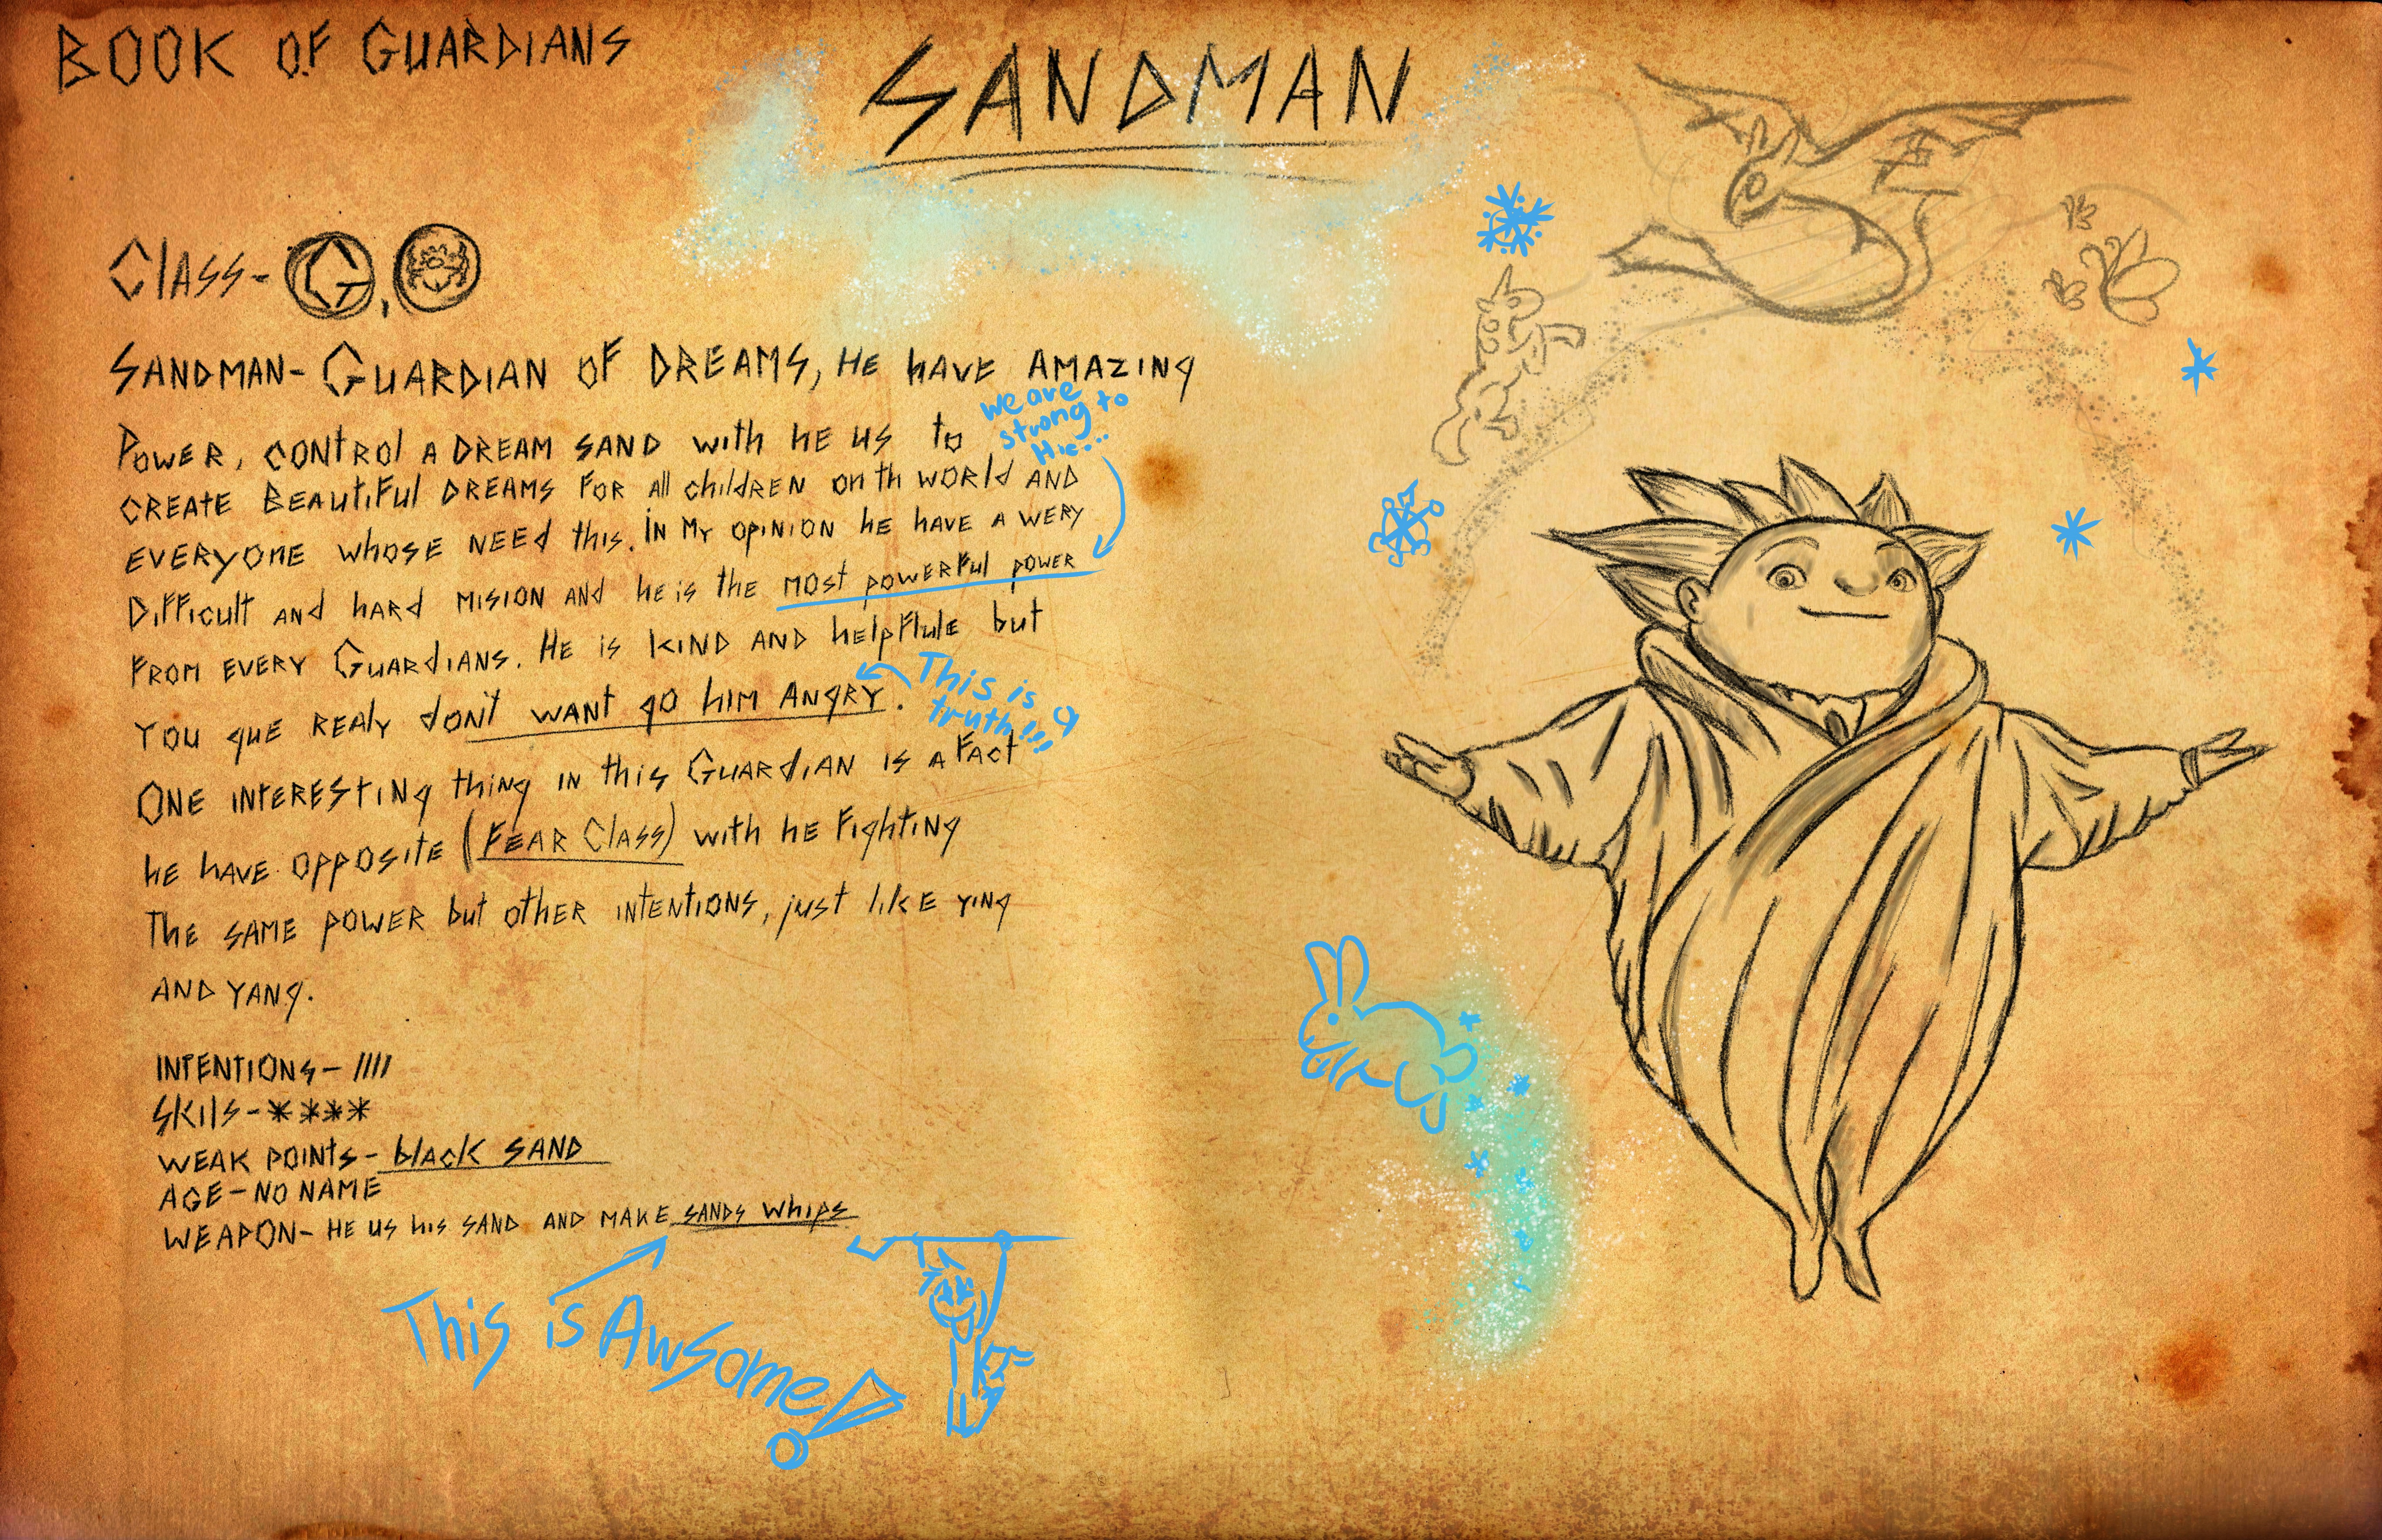 BOOK OF GUARDIANS
SANDMAN
Class- G,
SANDMAN- GUARDIAN OF DREAMS, HE HAVE AMAZING
POWER, CONTROl A DREAM SAND with HE US to
we are
strong to
CREATE BEAUtiFul DREAMS FOR All childREN on th WORld AND
EVERYONE WHOSE NEED this. IN MY OPINION HE HAVE A WERY
DiFFicult AND HARD MISION AND HE IS THE MOST POWERFul POWER
FROM EVERY GUARDIANS. HE IS KIND AND HElpFlule but
This is a
truth!!!
YOU gUE REALY don't WANT gO HIM ANgRY.
ONE INTERESTING thing IN this GUARDIAN IS A FAct
HE HAVE OPPOSITE (FEAR Class) WITH HE FigHTING
THE SAME POWER but OTHER INTENTIONS, just likE YINg
AND YANg.
INTENTIONS- ////
SKIlS- ****
WEAK POINTS- black SAND
AGE- NO NAME
WEAPON- HE US his SAND AND MAKE SANDS WHipS
This is Awsome!